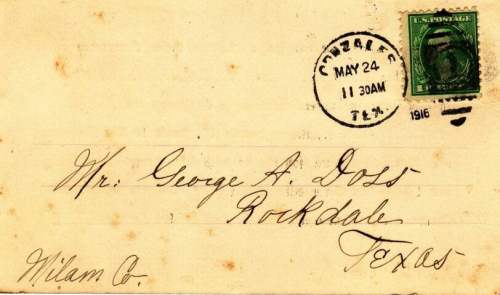 U.S. POSTAGE
GONZALES
MAY 24
11 30AM
TEX.
1916
Mr. George A. Doss
Rockdale
Texas
Milam Co.